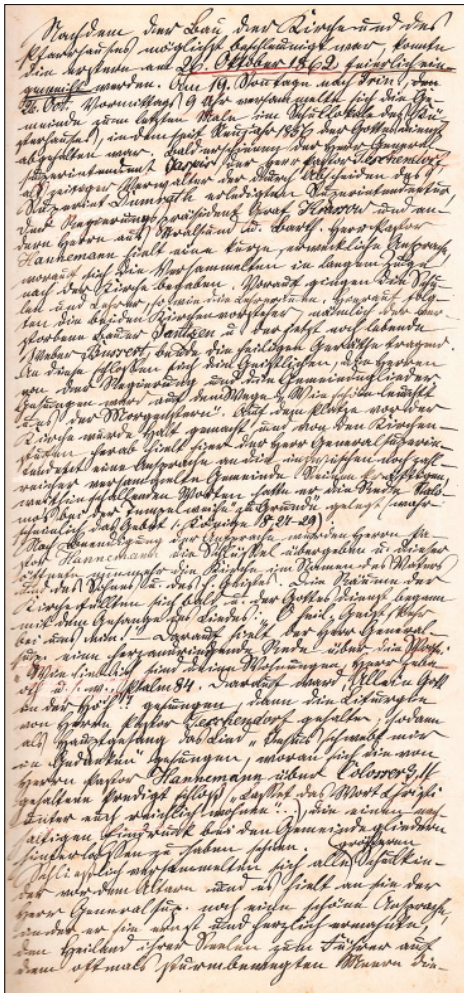 Nachdem der Bau der Kirche und des
Pfarrhauses möglichst beschleunigt war, konnte
die erstere am 26. Oktober 1862 feierlich ein-
geweiht werden. Am 19. Sonntage nach Trin., den
26. Oct. Vormittags 9 Uhr versammelte sich die Ge-
meinde zum letzten Male im Schullokale des Kü-
sterhauses, in dem seit Neujahr 1856 der Gottesdienst
abgehalten war. Bald erschienen der Herr General-
superintendent Jaspis, der Herr Pastor Teschendorf,
als zeitiger Verwalter der durch Abscheiden des
Superint. erledigten Superintendentur,
der Regierungspräsident Graf Krassow und an-
dere Herren aus Stralsund u. Barth. Herr Pastor
Hannemann hielt eine kurze, erweckliche Ansprache,
worauf sich die Versammelten in langem Zuge
nach der Kirche begaben. Vorauf gingen die Schu-
len und Lehrer, sowie die Lehrerinnen. Hierauf folg-
ten die beiden Kirchenvorsteher, nämlich der ver-
storbene Bauer Jantzen u. der jetzt noch lebende
Weber beide die heiligen Geräthe tragend.
An diese schlossen sich die Geistlichen, die Herren
von der Regierung und die Gemeindeglieder.
Gesungen ward auf dem Wege „Wie schön leuchtet
uns der Morgenstern“. Auf dem Platze vor der
Kirche wurde Halt gemacht und von den Kirchen-
stufen herab hielt hier der Herr Generalsuperin-
tendent eine Ansprache an die inzwischen noch zahl-
reicher versammelte Gemeinde. Seinen kräftigen,
weithin schallenden Worten hatte er die Rede Salo-
mos bei der Tempelweihe zu Grunde gelegt (wahr-
scheinlich das Gebet 1. Könige 8, 24-29).
Nach Beendigung der Ansprache wurden Herrn Pa-
stor Hannemann die Schlüssel übergeben u. dieser
öffnete nunmehr die Kirche im Namen des Vaters
und des Sohnes u. des h. Geistes. Die Räume der
Kirche füllten sich bald u. der Gottesdienst begann
mit dem Gesange des Liedes: „O heil. Geist, kehr
bei uns ein!“ – Darauf hielt der Herr General-
sup. eine herzandringende Rede über die Worte:
„Wie lieblich sind deine Wohnungen, Herr Zeba-
oth u. s. w.“ Psalm 84. Darauf ward „Allein Gott
in der Höh'“ gesungen, dann die Liturgie
von Herrn Pastor Teschendorf gehalten, sodann
als Hauptgesang das Lied „Jesus schwebt mir
in Gedanken“ gesungen, woran sich die von
Herrn Pastor Hannemann über Colosser 3, 16
gehaltene Predigt schloß „Lasset das Wort Christi
unter euch reichlich wohnen“..), die einen nach-
haltigen Eindruck bei den Gemeindegliedern
hinterlassen zu haben schien.
Schließlich versammelten sich alle größeren Schulkin-
der vor dem Altare und es hielt an sie der
Herr Generalsup. noch eine schöne Ansprache,
in der er sie ernst und herzlich ermahnte,
den Heiland ihrer Seelen zum Führer auf
dem oftmals sturmbewegten Meere die-